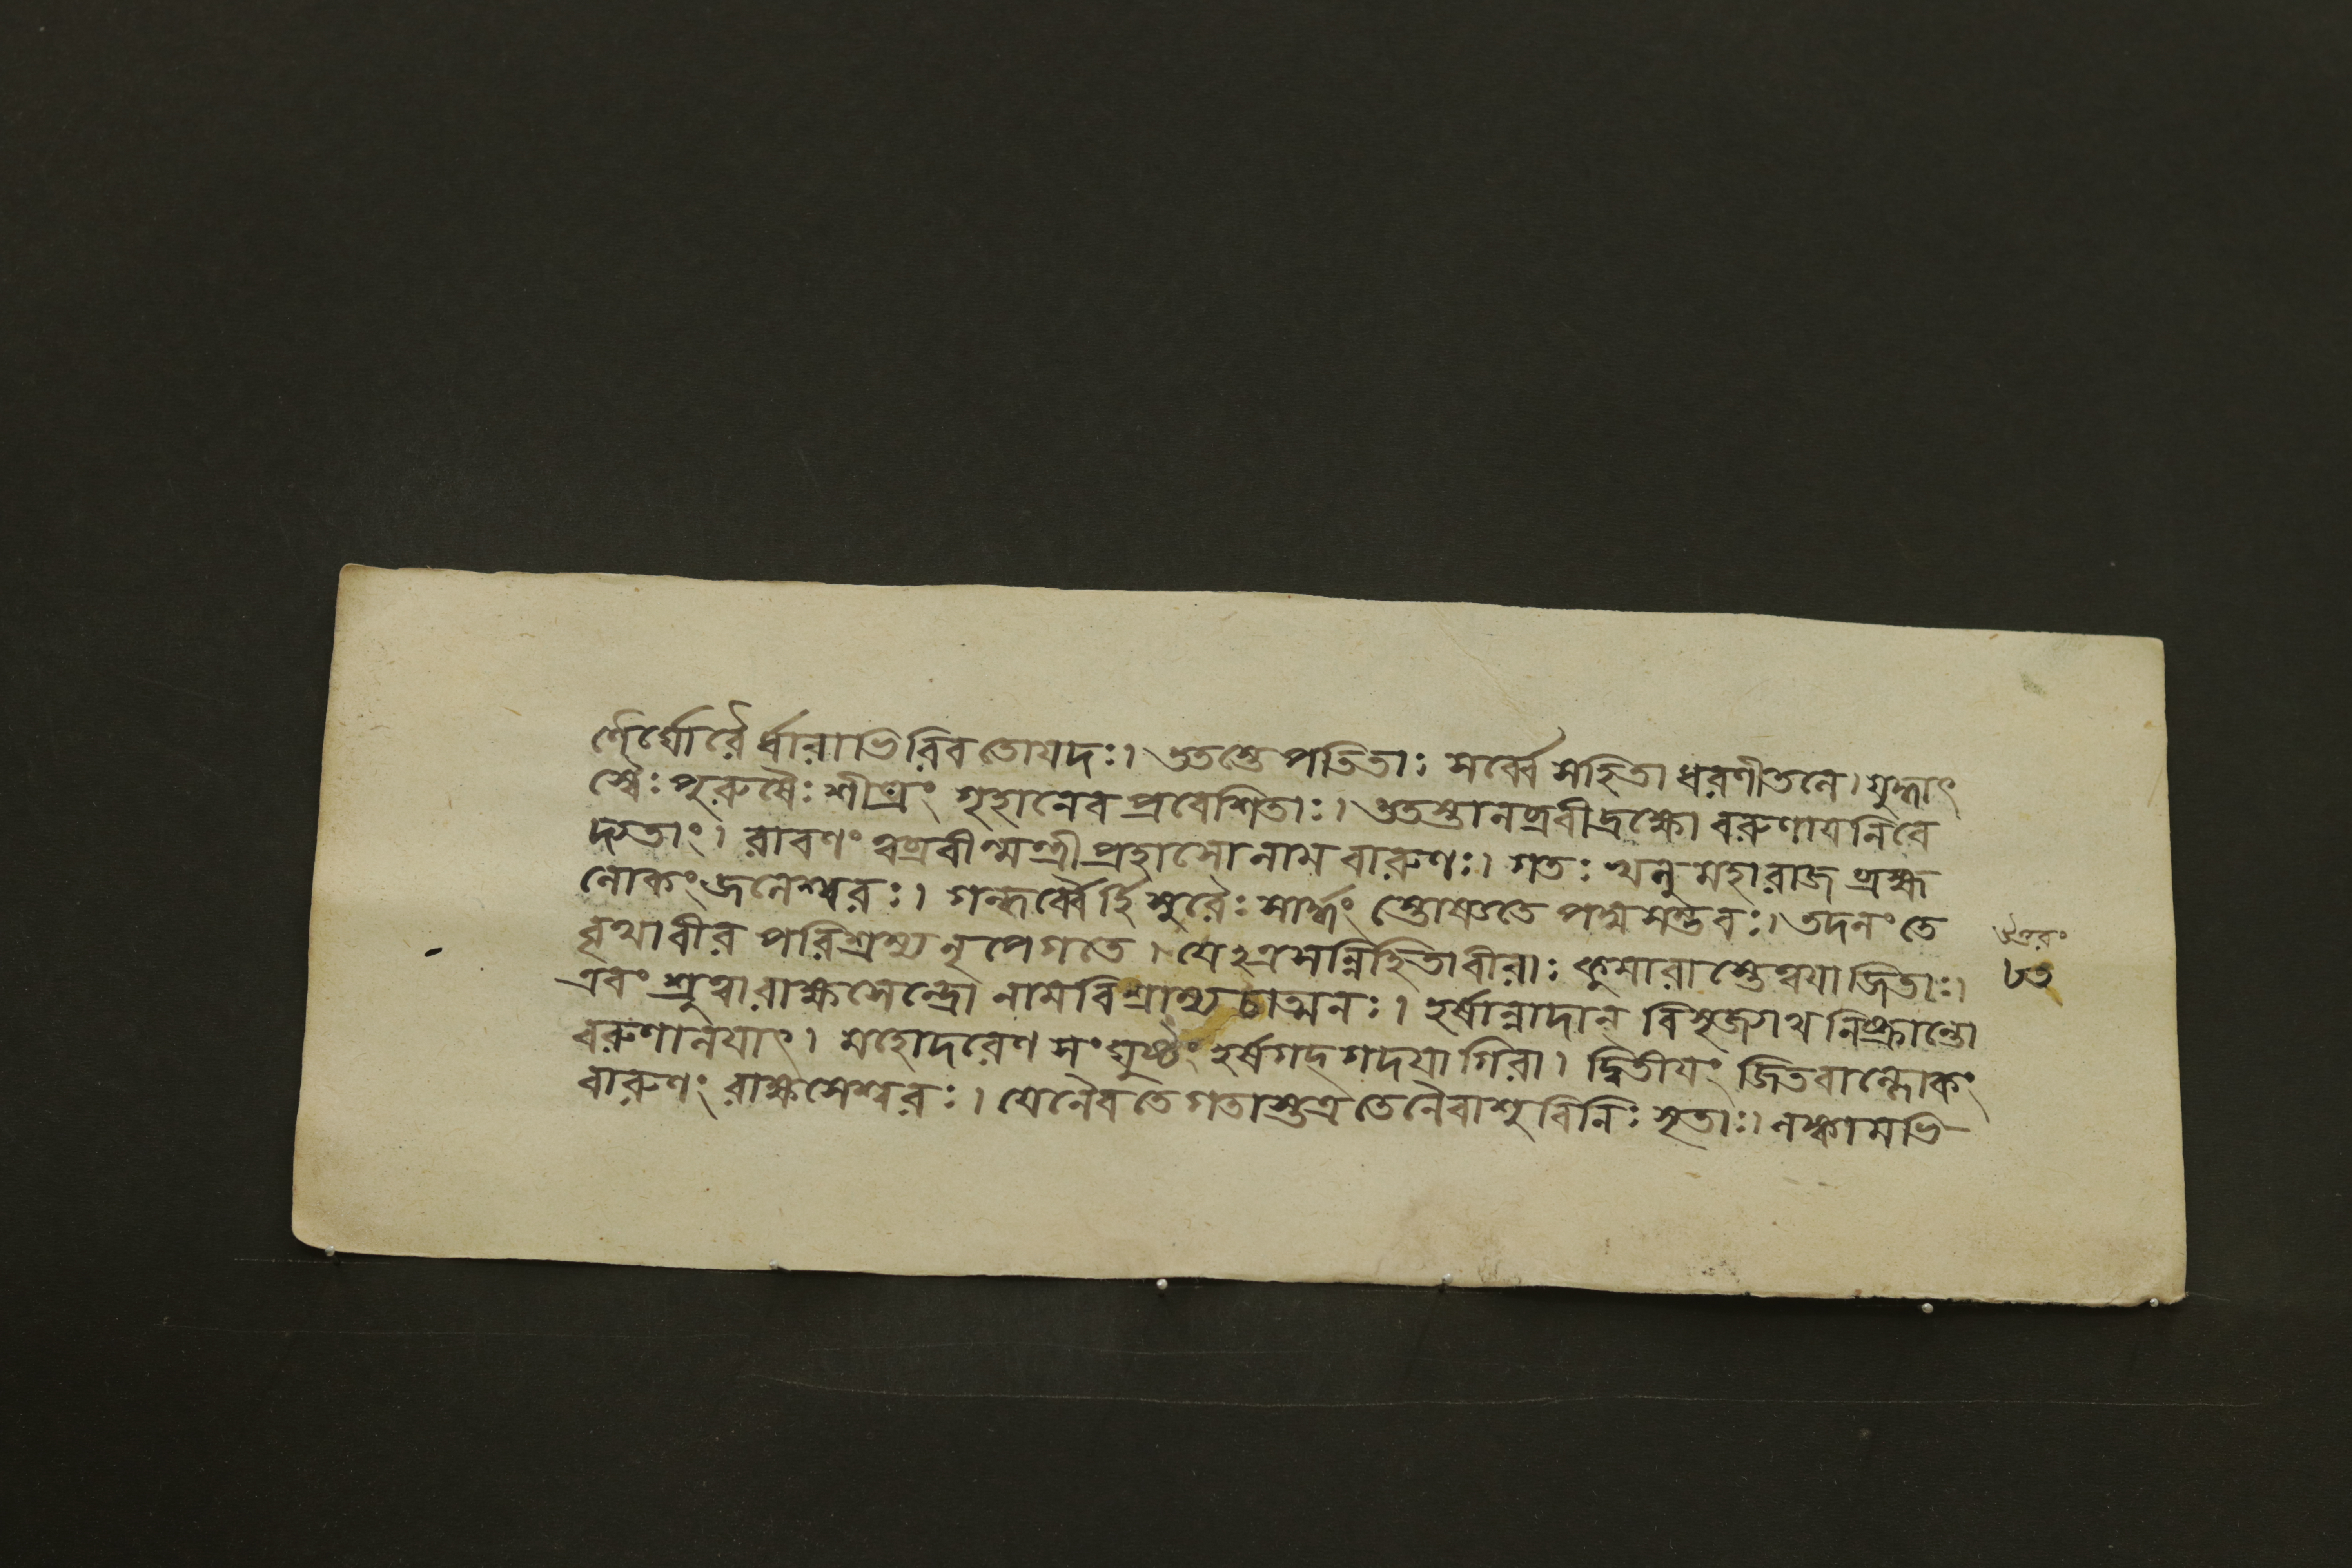 র্ণৈর্ঘোরৈর্ধারাভিরিব তোযদঃ। ততস্তে পতিতাঃ সর্ব্বে সহিতা ধরণীতলে। যুদ্ধাৎ
স্বৈঃ পুরুষৈঃ শীঘ্রং গৃহানেব প্রবেশিতাঃ। ততস্তানব্রবীদ্রক্ষো বরুণাযনিবে
দ্যতাং। রাবণং ত্বব্রবীন্মন্ত্রী প্রহাসো নাম বারুণঃ। গতঃ খলু মহারাজ ব্রহ্ম
লোকং জলেশ্বরঃ। গন্ধর্ব্বৈর্হি সুরৈঃ সার্দ্ধং স্তোষ্যতে পদ্মসম্ভবঃ। তদলং তে
বৃথাবীর পরিশ্রম্য নৃপেগতে। যেঽত্রসন্নিহিতাবীরাঃ কুমারাস্তেত্বযাজিতাঃ।
এবং শ্রুত্বারাক্ষসেন্দ্রো নামবিশ্রাম্য চাত্মনঃ। হর্ষান্নাদান্ বিসৃজন্নথ নিষ্ক্রান্তো
বরুণালযাৎ। মহোদরেণ সংঘুষ্টং হর্ষগদ্গদযাগিরা। দ্বিতীযং জিতবাল্লোকং
বারুণং রাক্ষসেশ্বরঃ। যেনৈবতে গতাস্তত্র তেনৈবাশু বিনিঃসৃতাঃ। লঙ্কামভি
উত্তরং
৮৩